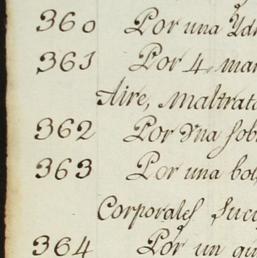 360 Por una Ydr
361 Por 4 man
Aire, maltrata
362 Por Vna sob
363 Por una bol
Corporales, suci
364 Por un qui